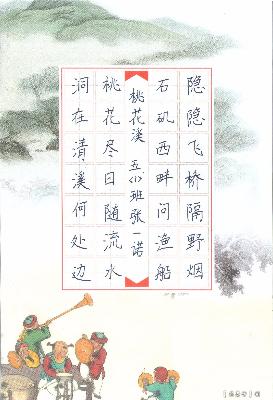 隐隐飞桥隔野烟
石矶西畔问渔船
桃花溪 五(5)班张一诺
桃花尽日随流水
洞在清溪何处边